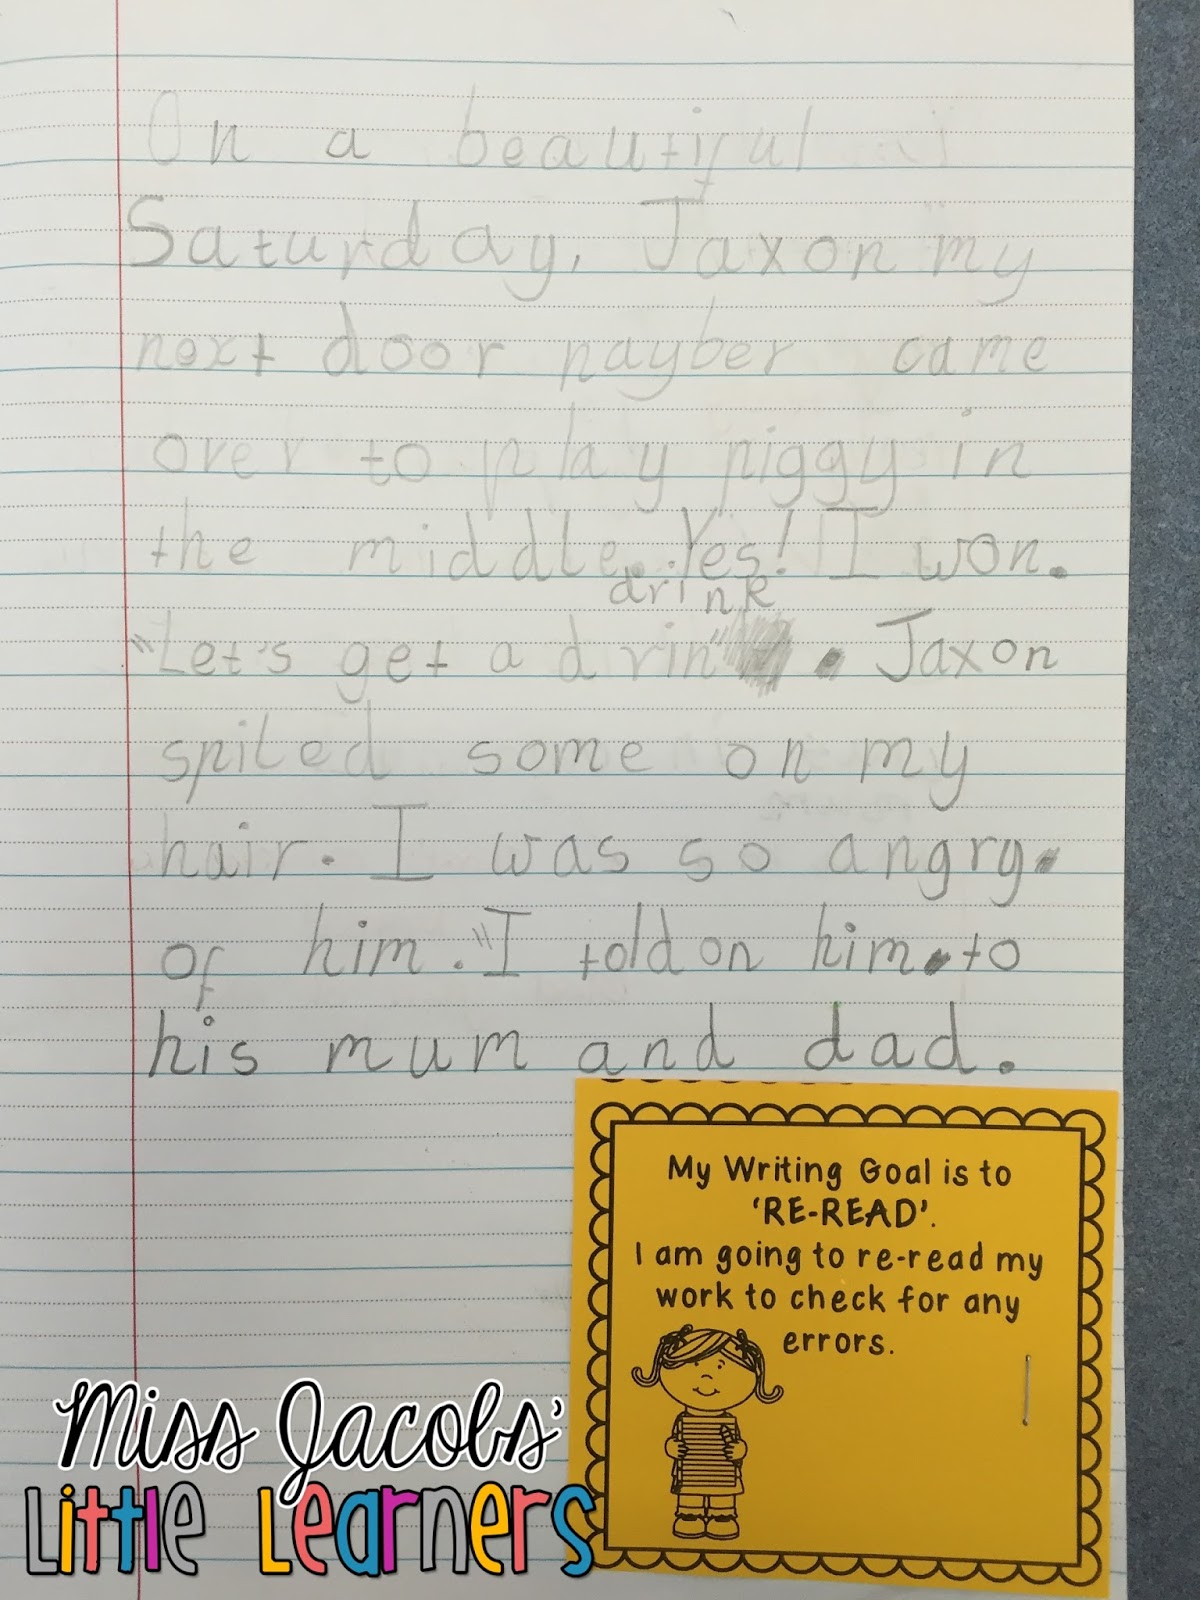 On a beautiful
Saturday, Jaxon my
next door nayber came
over to play piggy in
the middle. Yes! I won.
drink
"Let's get a drin". Jaxon
spiled some on my
hair. I was so angry.
of him. "I told on him. to
his mum and dad.
My Writing Goal is to
'RE-READ'.
I am going to re-read my
work to check for any
errors.
Miss Jacobs'
Little Learners